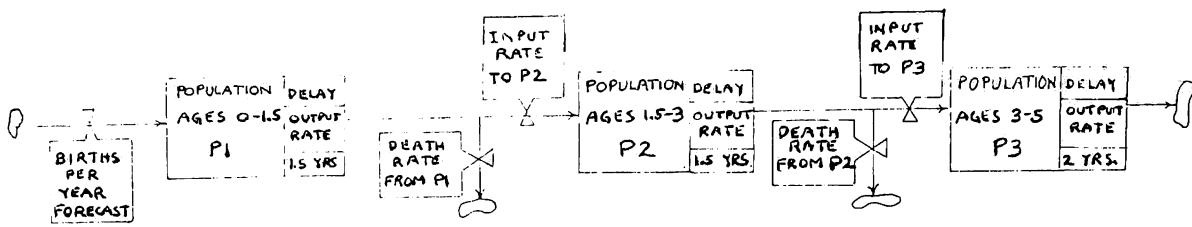 BIRTHS
PER
YEAR
FORECAST
POPULATION
AGES 0-1.5
P1
DELAY
OUTPUT
RATE
1.5 YRS.
DEATH
RATE
FROM P1
INPUT
RATE
TO P2
POPULATION
AGES 1.5-3
P2
DELAY
OUTPUT
RATE
1.5 YRS.
DEATH
RATE
FROM P2
INPUT
RATE
TO P3
POPULATION
AGES 3-5
P3
DELAY
OUTPUT
RATE
2 YRS.